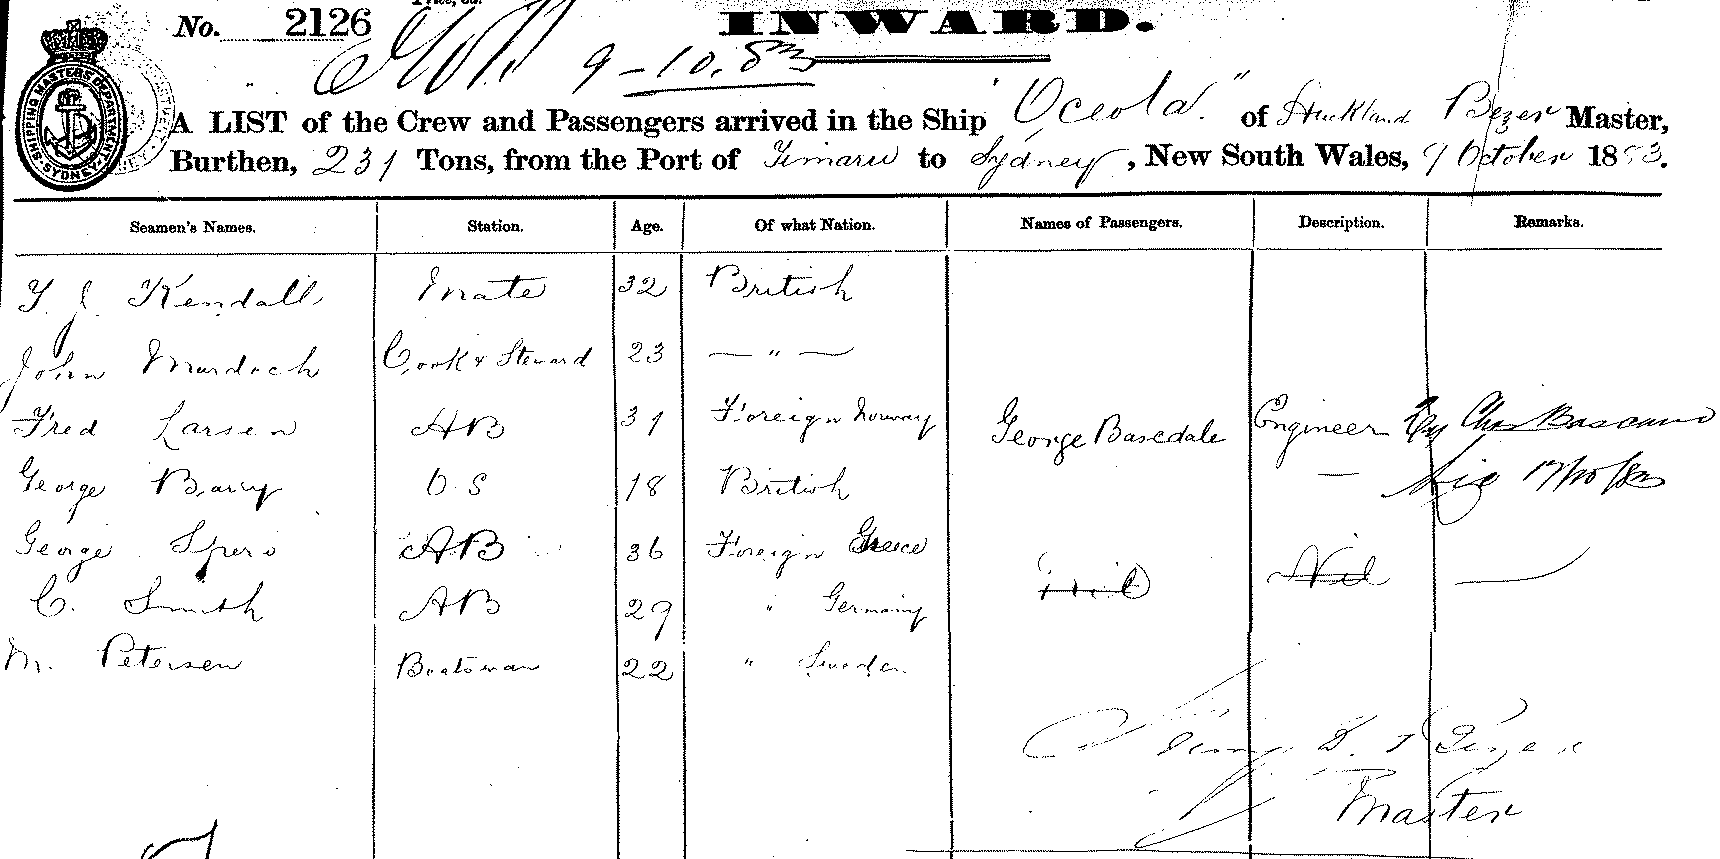 No. 2126
INWARD.
9-10.83
A LIST of the Crew and Passengers arrived in the Ship "Oceola" of Auckland Bezer Master,
Burthen, 231 Tons, from the Port of Timaru to Sydney, New South Wales, 9 October 1883.
SHIPPING MASTERS DEPARTMENT SYDNEY
Seamen's Names. Station. Age. Of what Nation. Names of Passengers. Description. Remarks.
T J Kendall Mate 32 British
John Murdoch Cook & Steward 23 — " —
Fred Larsen AB 31 Foreign Norway George Basedale Engineer
George Barry O.S 18 British — 17/10/83
George Spero AB 36 Foreign Greece Nil Nil —
C. Smith AB 29 " Germany
M. Petersen Boatswan 22 " Sweden
Bezer
Master